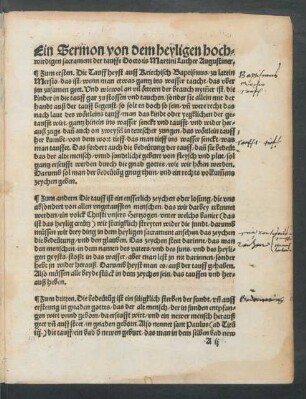 Ein Sermon von dem heyligen hoch-
wirdigen sacrament der tauffe Doctoris Martini Luther Augustiner,
¶ Zum ersten. Die Tauff heyst auff Kriechisch Baptismus zu latein
Mersio. das ist / wenn man etwas gantz ins wasser taucht. das vber
ym zusamen geet. Und wiewol an vil örtern der brauch nymer ist. die
kinder in die tauff gar zu stossen und tauchen. sonder sie allein mit der
handt auß der tauff begeust. so solt es doch so sein
nach laut des wörtleins tauff man das kindt oder yeglichen der ge-
taufft wirt. gantz hinein ins wasser senckt und taufft. und wider her-
auß zuge
her kumbt. von dem wort tieff. das man tieff ins wasser senckt was
man tauffet. Das fordert auch die bedeütung der tauff. dann sie bedeüt
das der alte mensch / und sündtliche gepürt von fleysch und plut / sol
gantz erseüfft werden durch die gnad gottes / wie wir hören werden.
Darumb sol man der bedeütung gnug thun / und ein recht volkumens
zeychen geben.
¶ Zum andern Die tauff ist ein eusserlich zeychen oder losung. die uns
absondert von allen ungetaufften menschen. das wir darbey erkennet
werden ein volck Christi unsers hertzogen / unter welchs banier (das
ist das heylig creütz) wir stetigklich streyten wider die sünd. darumb
müssen wir drey ding in dem heyligen sacrament ansehen das zeychen
die bedeütung. und den glauben. Das zeychen steet darinne. das man
den menschen in dem namen des vaters / und des suns / und des heyli-
gen geysts / stosst in das wasser. aber man lest yn nit darinnen / sonder
hebt yn wider herauß. Darumb heyst man es / auß der tauff gehaben.
Also müssen alle beyde stück in dem zeychen sein. das tauffen und her-
auß heben.
¶ Zum dritten. Die bedeütung ist ein seligklich sterben der sünd. und auff
ersteeung in gnaden gottes. das der alt mensch. der in sünden empfan-
gen wirt und geborn / da erseüfft wirt / und ein newer mensch herauß
geet und auff steet in gnaden geborn. Also nennet sant Paulus (ad Titū
iij.) die tauff ein bad der newen geburt. das man in dem selben bad new
A ij